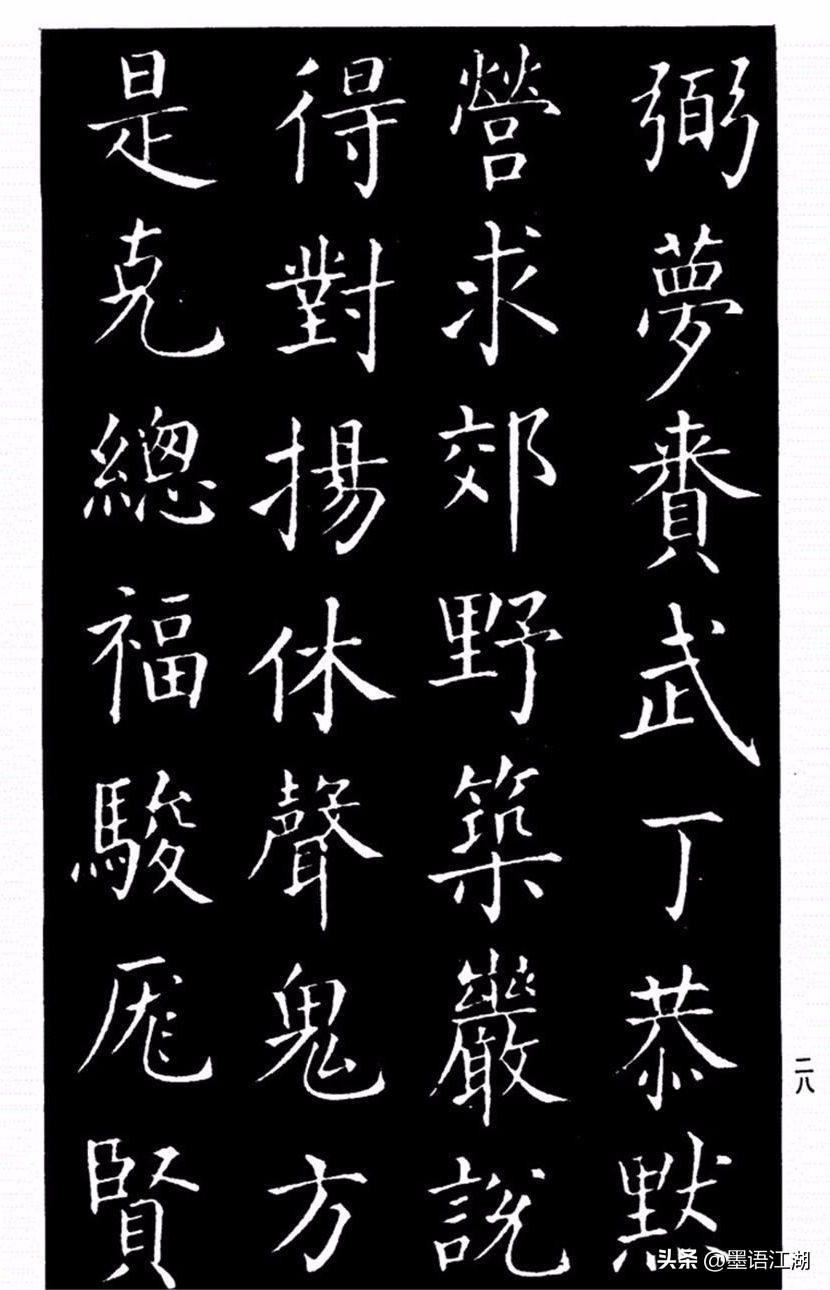 弼夢賚武丁恭默
營求郊野築巖說
得對揚休聲鬼方
是克總福駿厖賢
二八
头条 @墨语江湖